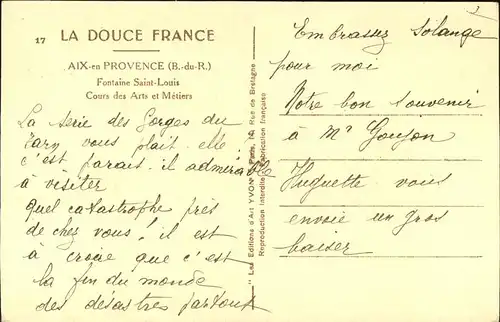 17 LA DOUCE FRANCE
AIX-en PROVENCE (B.-du-R.)
Fontaine Saint-Louis
Cours des Arts et Métiers
La serie des Gorges du
Tarn vous plait-elle
c'est parait-il admirable
à visiter
quel catastrophe près
de chez vous! il est
à croire que c'est
la fin du monde
des désastres partout
" Les Editions d'Art YVON " Paris, Rue de Bretagne
Reproduction interdite Fabrication française
Embrassez Solange
pour moi
Notre bon souvenir
à Mr Goujon
Huguette vous
envoie un gros
baiser